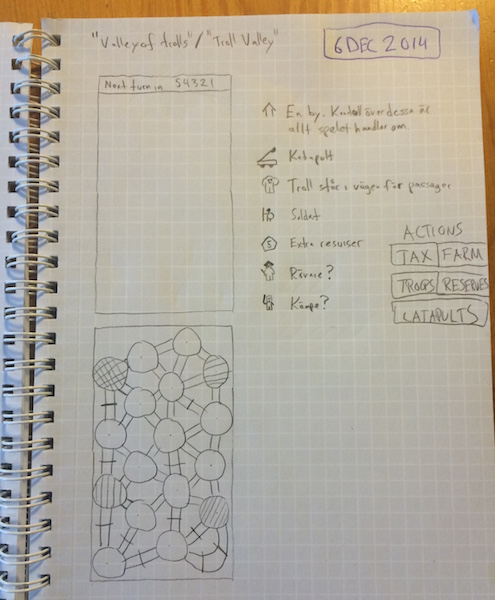 "Valley of trolls" / "Troll Valley"
6 DEC 2014
Next turn in 54321
En by. Kontroll över dessa är
allt spelet handlar om.
Katapult
Troll står i vägen för passager
Soldat
$ Extra resurser
Rävare?
Kämpe?
ACTIONS
TAX FARM
TROOPS RESERVES
CATAPULTS